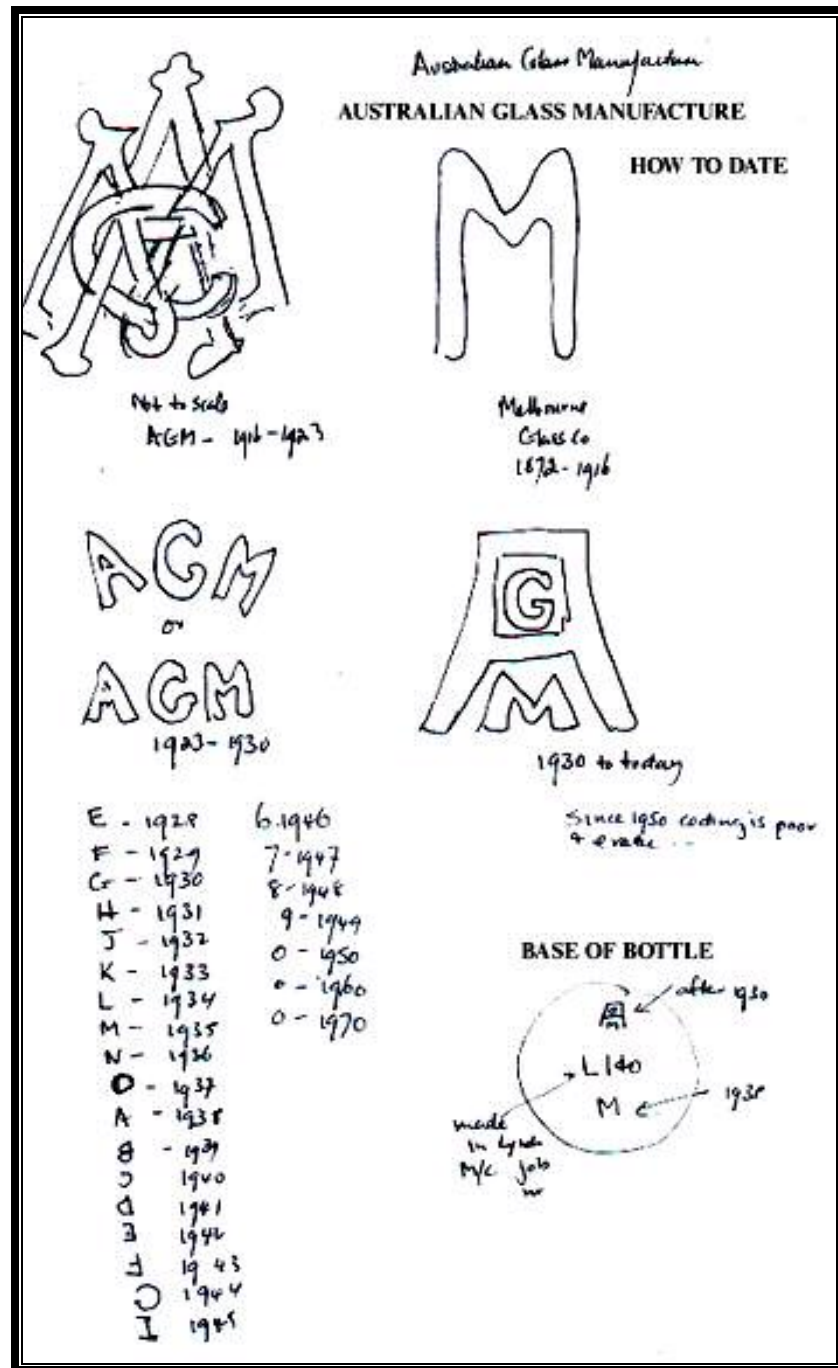 Australian Glass Manufacture
AUSTRALIAN GLASS MANUFACTURE
HOW TO DATE
M
Not to scale
AGM - 1916-1923
Melbourne
Glass Co
1872-1916
AGM
or
AGM
1923-1930
G
M
1930 to today
Since 1950 coding is poor
&
E - 1928
F - 1929
G - 1930
H - 1931
J - 1932
K - 1933
L - 1934
M - 1935
N - 1936
O - 1937
A - 1938
B - 1939
C 1940
D 1941
E 1942
F 1943
G 1944
I 1945
6-1946
7-1947
8-1948
9-1949
0-1950
0-1960
0-1970
BASE OF BOTTLE
after 1930
L140
M
made
in
M/c job